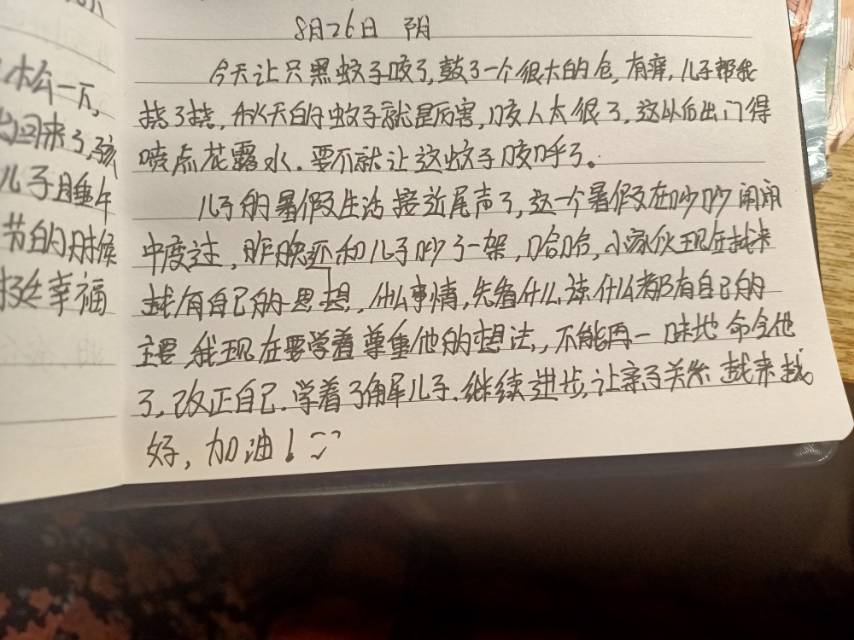 8月26日 阴
今天让只黑蚊子咬了,鼓了一个很大的包,有痒,儿子帮我
挠了挠,秋天的蚊子就是厉害,咬人太狠了,这以后出门得
喷点花露水.要不就让这蚊子咬哼了。
儿子的暑假生活接近尾声了,这一个暑假在吵吵闹闹
中度过,昨晚还和儿子吵了一架,哈哈,小家伙现在越来
越有自己的思想,什么事情,先看什么,读什么都有自己的
主要 我现在要学着尊重他的想法,不能再一味地命令他
了,改正自己.学着了解儿子.继续进步,让亲子关系越来越
好,加油!
松一下,
回来了,孩
儿子睡午
节的时候
幸福